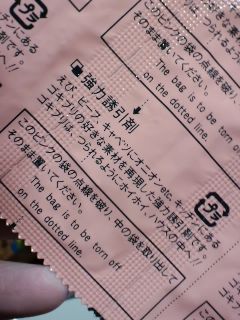 チにある
剤です。
へ!!
このピンクの袋の点線を破り、
そのまま置いてください。
The bag is to be torn off
on the dotted line.
プラ
強力誘引剤
えび、ビーフ、キャベツにオニオン etc. キッチンにある
ゴキブリの好きな素材を再現した強力誘引剤です。
ゴキブリは、つられるようにホイホイハウスの中へ!!
このピンクの袋の点線を破り、中の袋を取り出して
そのまま置いてください。
The bag is to be torn off
on the dotted line.
プラ